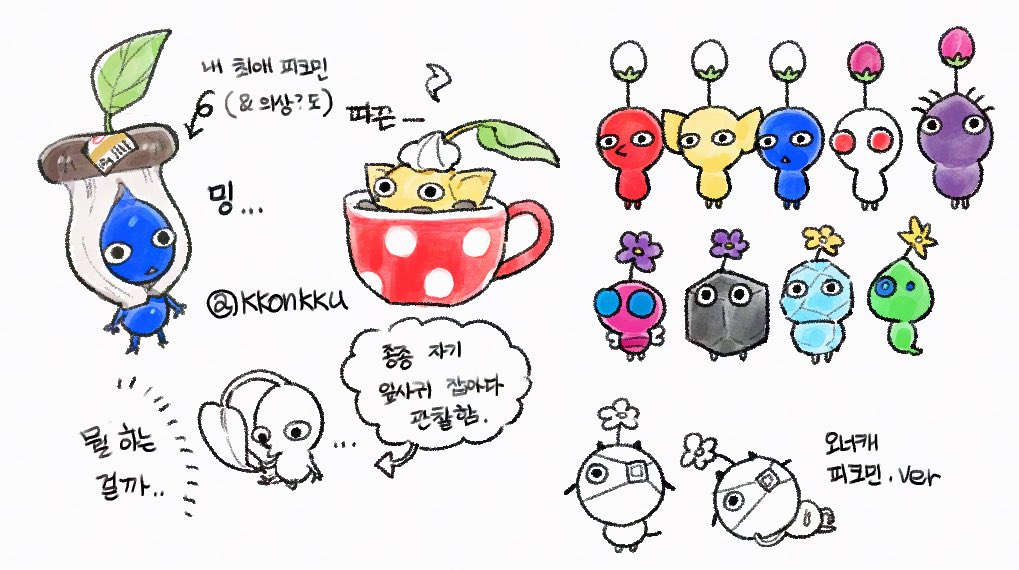 내 최애 피크민
(& 의상? 도)
따끈ㅡ
밍...
@kkonkku
종종 자기
잎사귀 잡아다
관찰함.
...
뭘 하는
걸까..
오너캐
피크민.ver